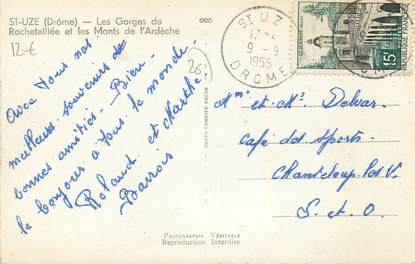 ST-UZE (Drôme) — Les Gorges de
Rochetaillée et les Monts de l'Ardèche
12-€
26
Avec tous nos
meilleurs souvenirs de
bonnes amitiés. Bien
le bonjour à tous le monde.
Roland et Marthe
Barrois
PHOTO COMBIER MACON
ST UZE
9-9
1958
DROME
15F
Mme et Mr Delvar
Café des sports
Chanteloup les V.
S. et O.
PHOTOGRAPHIE VÉRITABLE
Reproduction Interdite